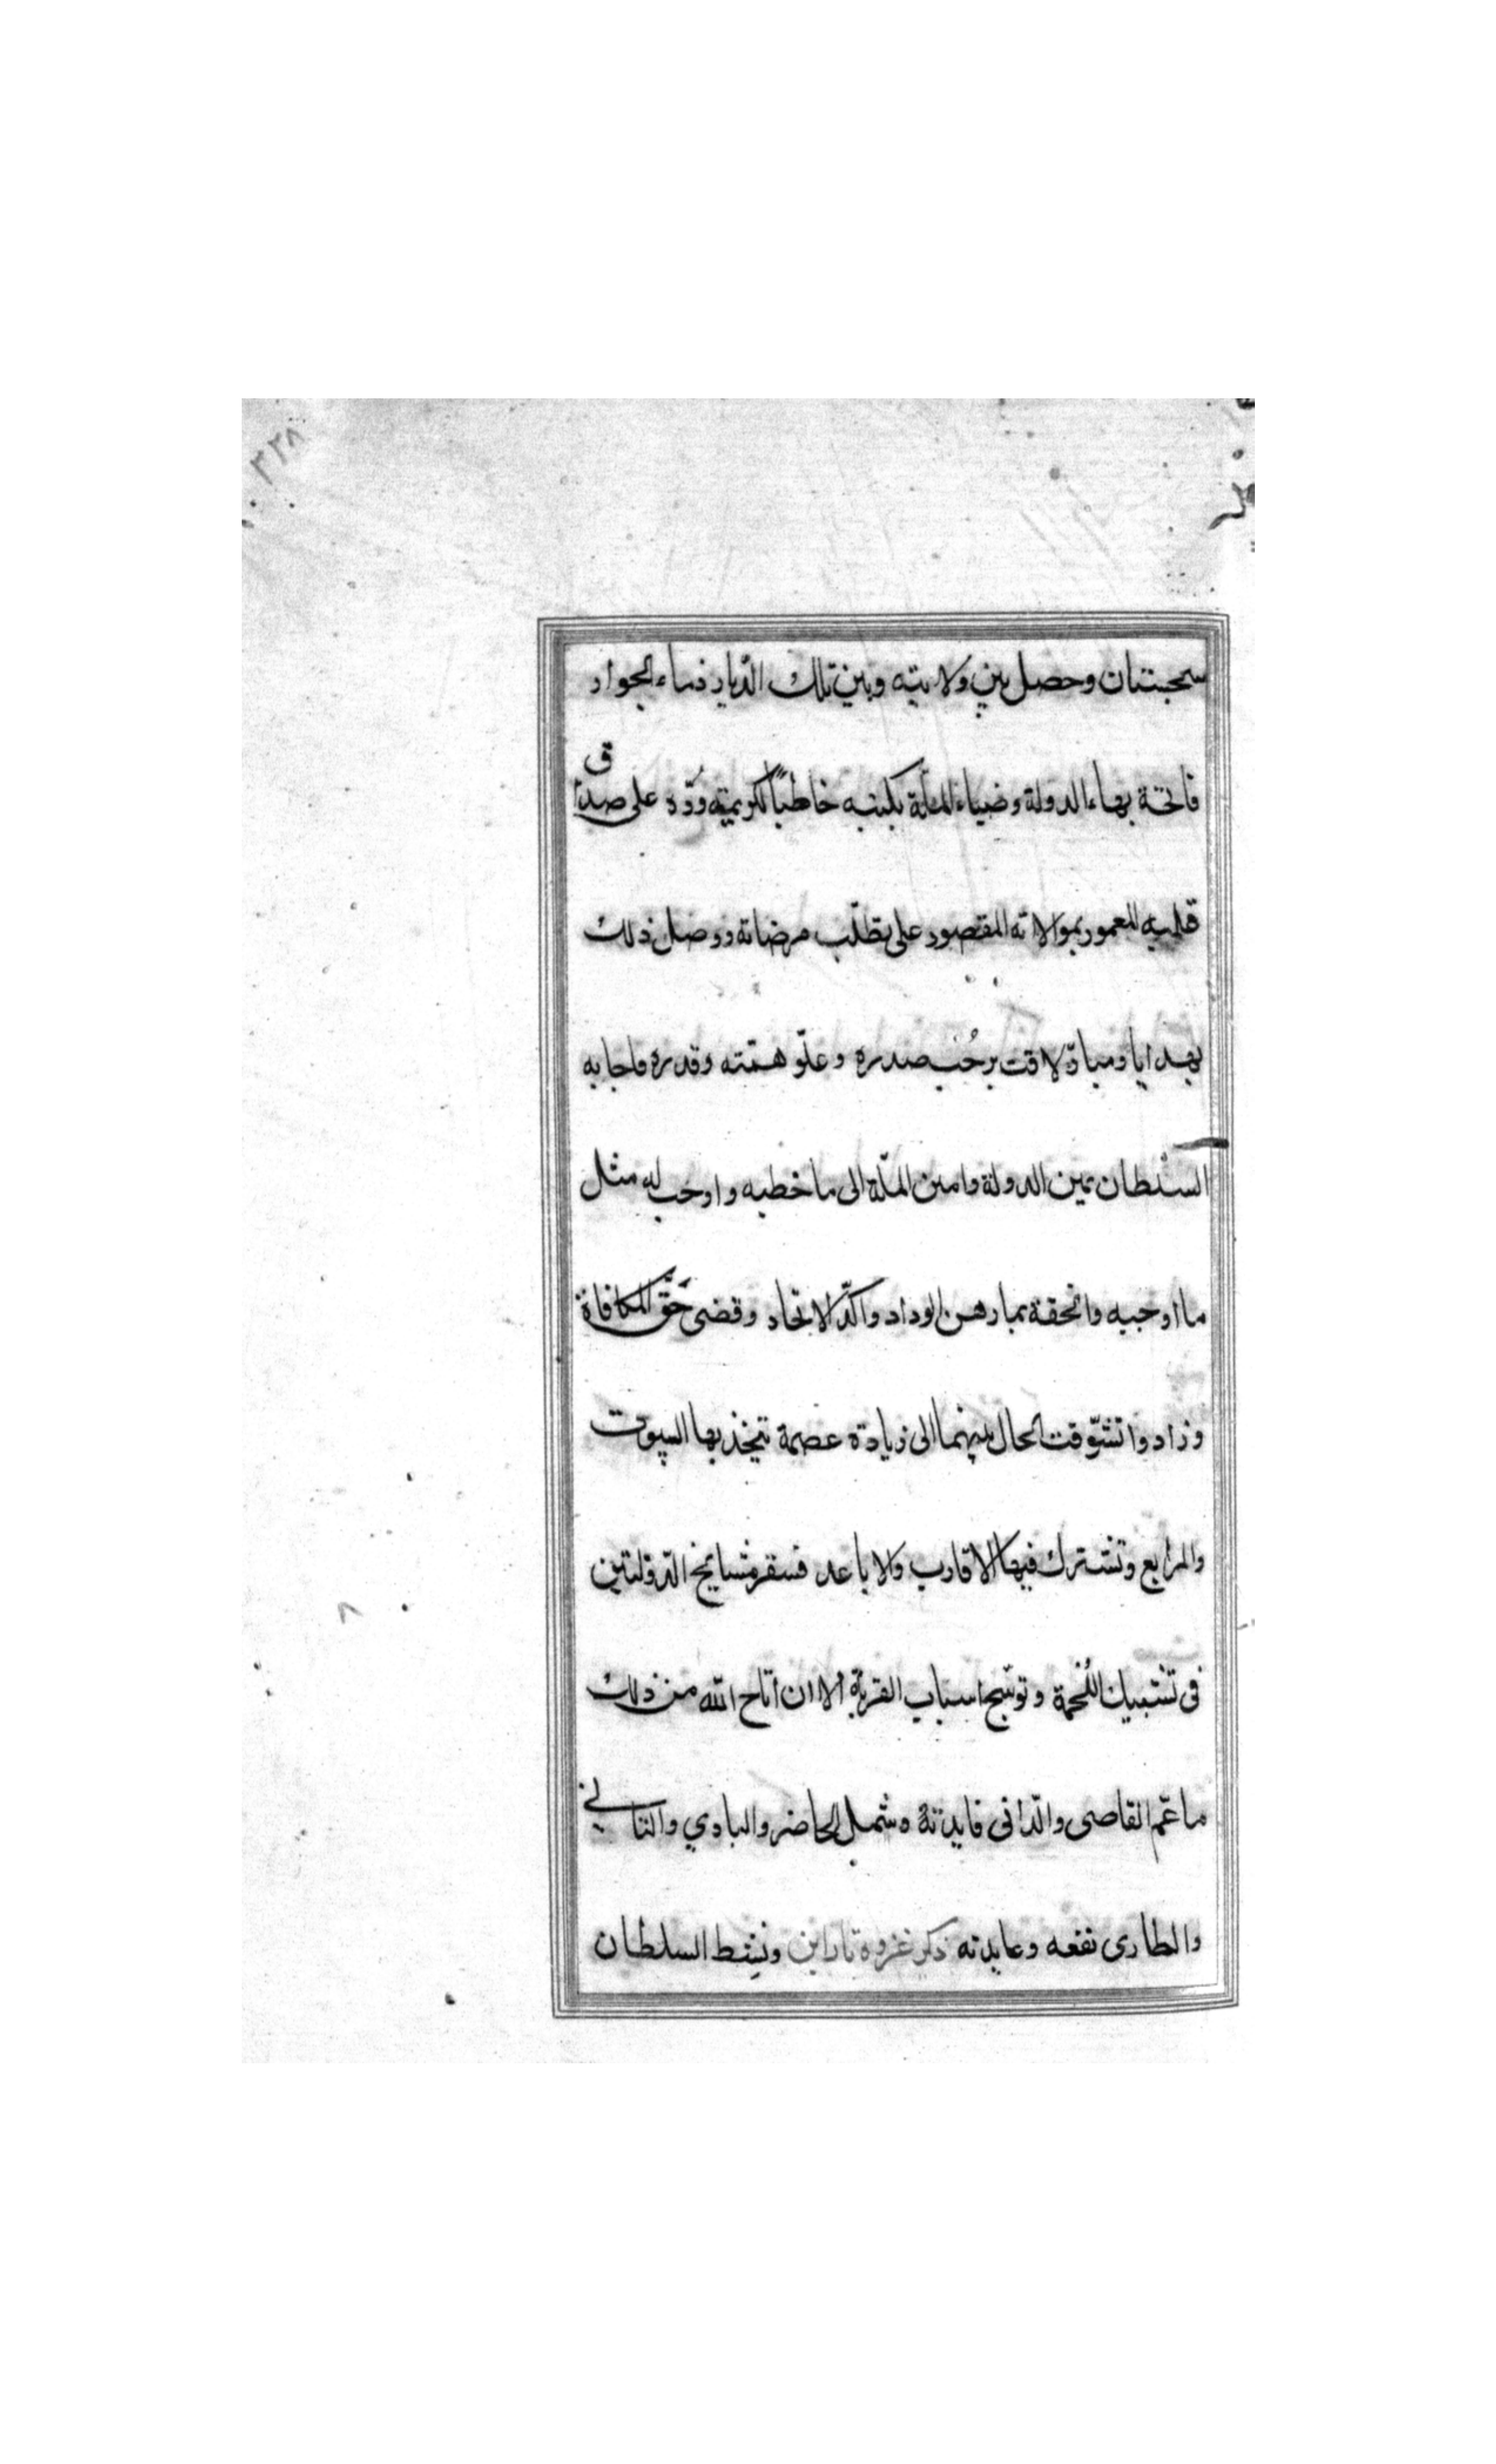 ٣٣٨
سجستان وحصل بين ولايته وبين تلك الديار ذماء الجوار
فاتحة بهاء الدولة وضياء الملّة بكتبه خاطبًا لكريمة وُدّه على صداق
قلبه المعمور بموالاته المقصور على تطلّب مرضاته ووصل ذلك
بهدايا ومبارّ لاقت برحُب صدره وعلوّ همّته وقدره فاجابه
السلطان يمين الدولة وامين الملّة الى ما خطبه واوجب له مثل
ما اوجبه واتحفه بما رهن الوداد واكّد الاتحاد وقضى حَقّ المكافاة
وزاد وا تشوّقت الحال بينهما الى زيادة عصمة تتخذ بها البيوت
والمرابع وتشترك فيها الاقارب والاباعد فسفر مشايخ الدّولتين
فى تشبيك اللُحمة وتوشيج اسباب القربة الا ان اتاح الله من ذلك
ما عمّ القاصى والدّانى فايدتهٔ وشمل الحاضر والبادي والتانى
والطارى نفعه وعايدته ذكر غزوة ناراين ونشط السلطان